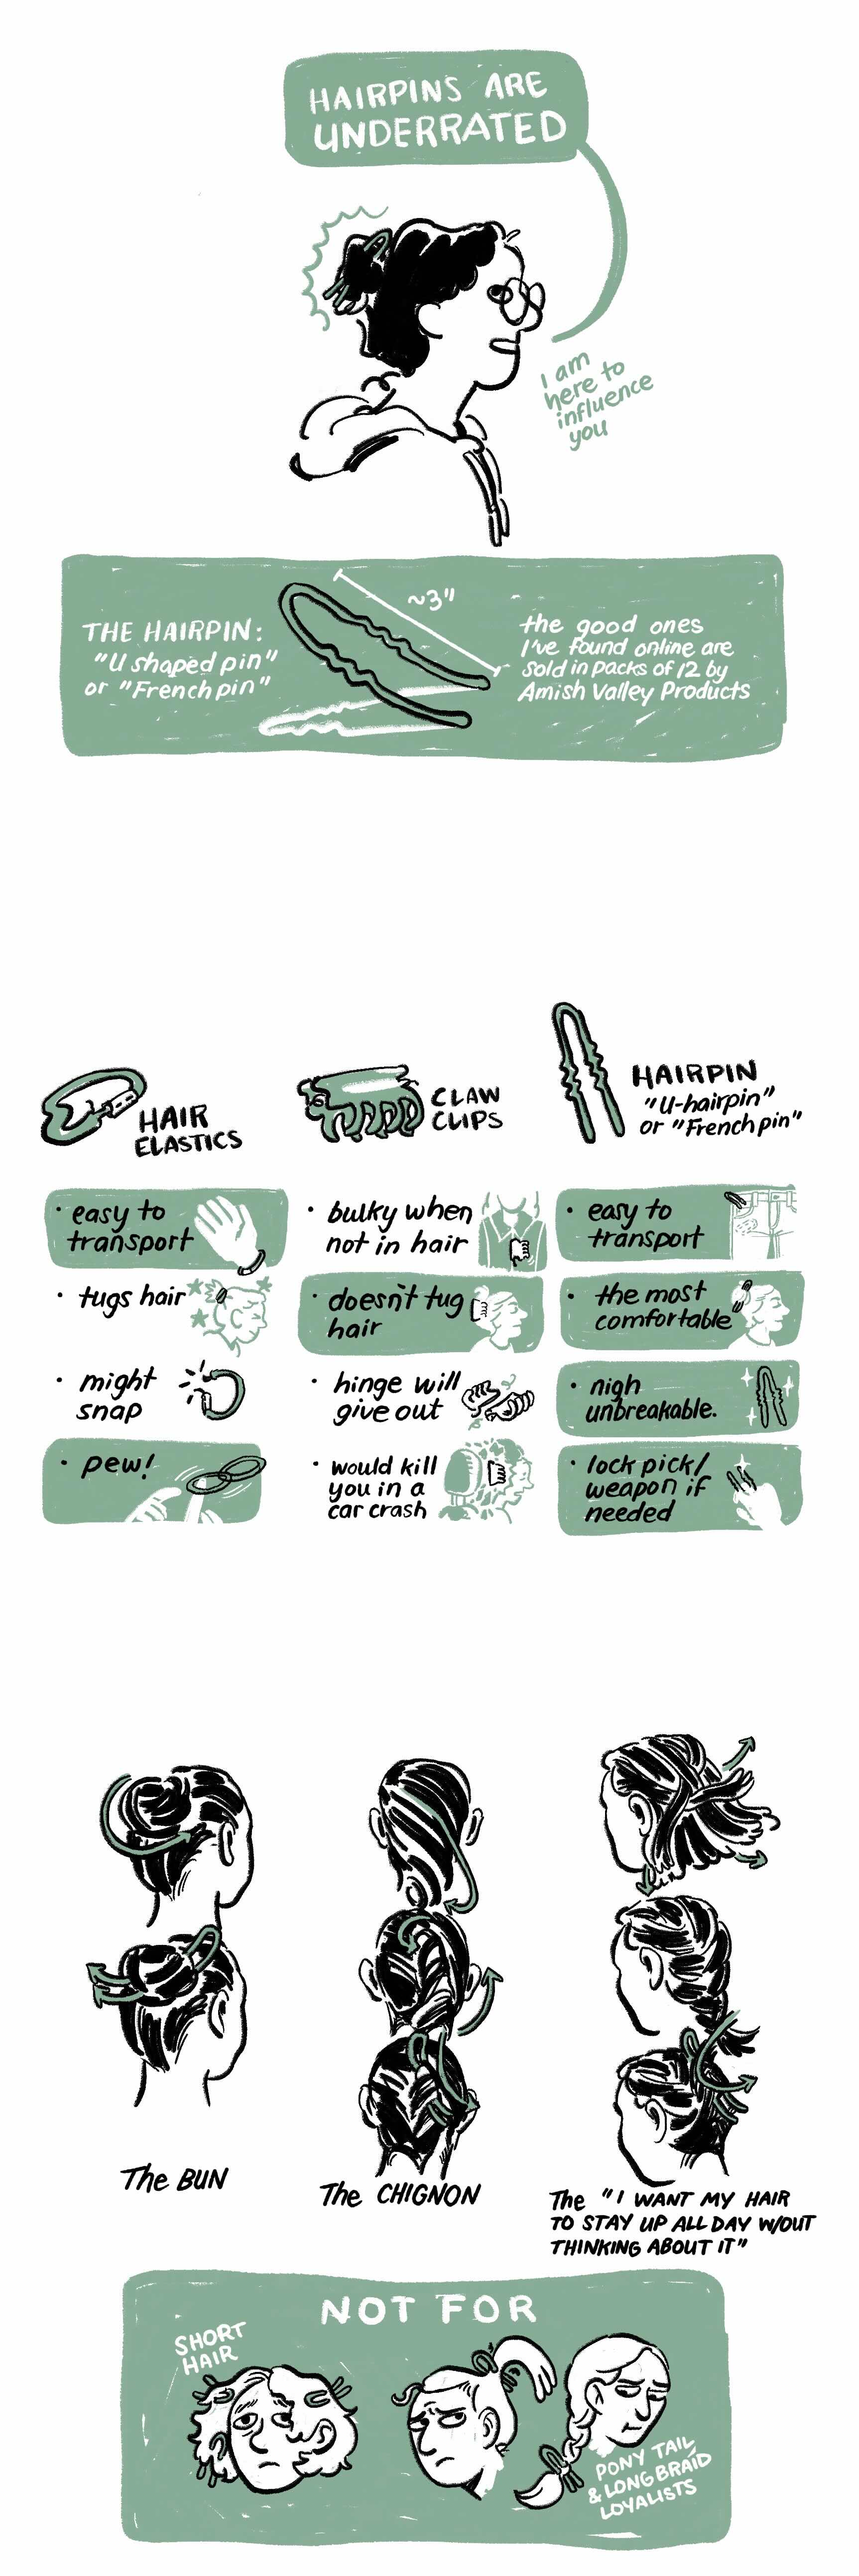 HAIRPINS ARE
UNDERRATED
I am
here to
influence
you
THE HAIRPIN:
"U shaped pin"
or "French pin"
~3"
the good ones
I've found online are
sold in packs of 12 by
Amish Valley Products
HAIR
ELASTICS
• easy to
transport
• tugs hair
• might
snap
• pew!
CLAW
CLIPS
• bulky when
not in hair
• doesn't tug
hair
• hinge will
give out
• would kill
you in a
car crash
HAIRPIN
"U-hairpin"
or "French pin"
• easy to
transport
• the most
comfortable
• nigh
unbreakable.
• lock pick/
weapon if
needed
The BUN
The CHIGNON
The "I WANT MY HAIR
TO STAY UP ALL DAY W/OUT
THINKING ABOUT IT"
NOT FOR
SHORT
HAIR
PONY TAIL
& LONG BRAID
LOYALISTS